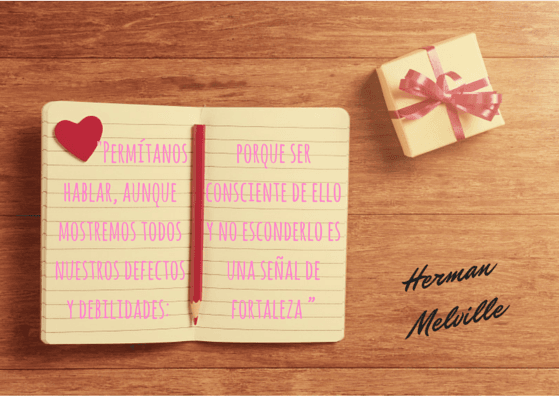 "Permítanos
hablar, aunque
mostremos todos
nuestros defectos
y debilidades:
porque ser
consciente de ello
y no esconderlo es
una señal de
fortaleza"
Herman
Melville